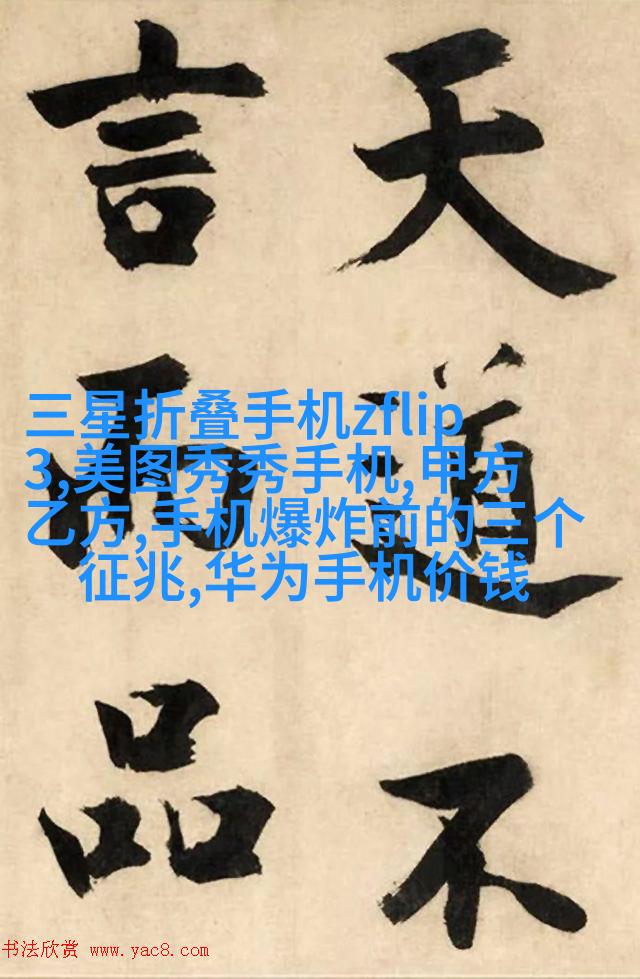 天道不
言而品
三星折叠手机zflip
3,美图秀秀手机,甲方
乙方,手机爆炸前的三个
征兆,华为手机价钱
书法欣赏 www.yac8.com